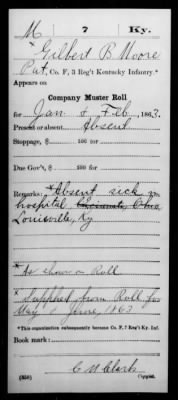 M 7 Ky.
* Gilbert B Moore
Pvt, Co. F, 3 Reg't Kentucky Infantry.*
Appears on
Company Muster Roll
for Jan & Feb, 1863.
Present or absent Absent
Stoppage, $ 100 for
Due Gov't, $ 100 for
Remarks: *Absent sick in
hospital, Cincinnati, Ohio,
Louisville, Ky
* As shown on Roll
* Supplied from Roll for
May & June, 1863
*This organization subsequently became Co. F, 7 Reg't Ky. Inf.
Book mark:
(858)
C W Clark
Copyist.